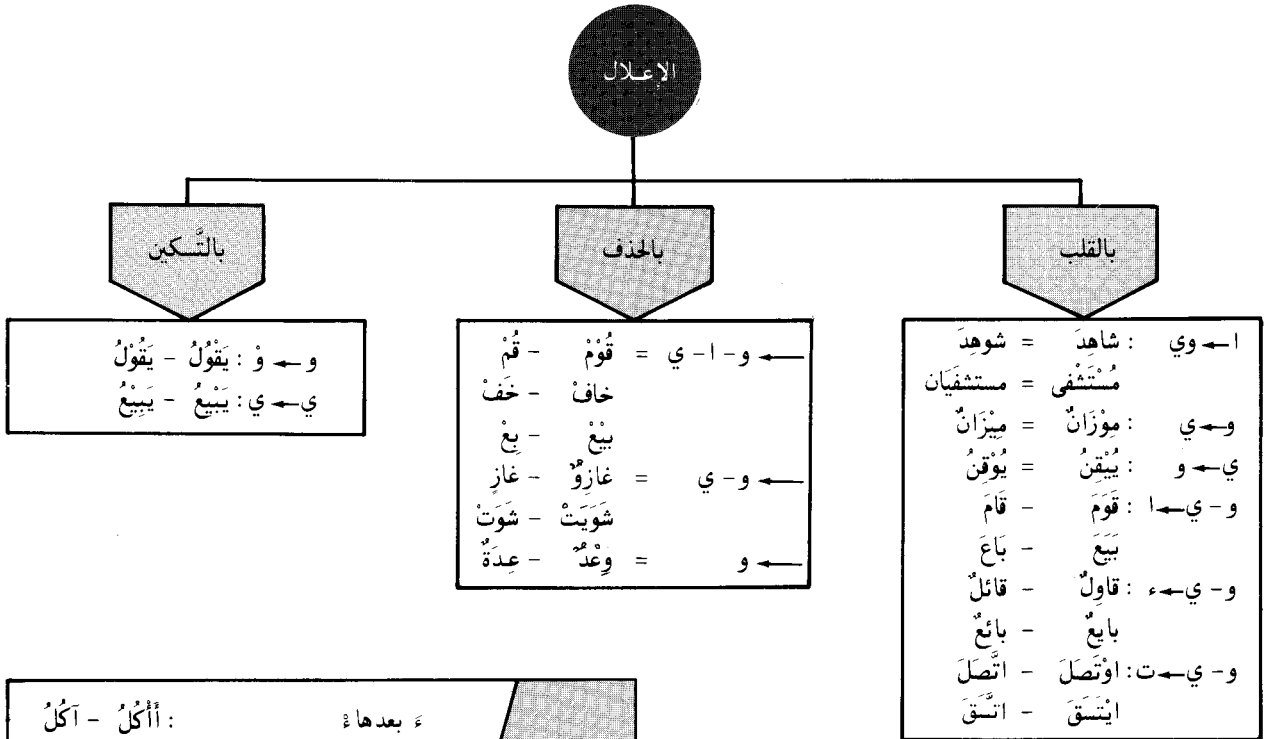 الإعلال
بالقلب
بالحذف
بالتَّسكين
ا ← وي : شاهِدَ = شوهِدَ
مُسْتَشْفى = مستشفَيَان
و ← ي : مِوْزَانٌ = مِيْزَانٌ
ي ← و : يُيْقِنُ = يُوْقِنُ
و - ي ← ا : قَوَمَ - قَامَ
بَيَعَ - بَاعَ
و - ي ← ء : قاوِلٌ - قائلٌ
بايعٌ - بائعٌ
و - ي ← ت : اوْتَصَلَ - اتَّصَلَ
ايْتَسَقَ - اتَّسَقَ
← و - ا - ي = قُوْمْ - قُمْ
خافْ - خَفْ
بيْعْ - بِعْ
← و - ي = غازِوٌ - غازٍ
شَوَيَتْ - شَوَتْ
← و = وِعْدٌ - عِدَةٌ
و ← وْ : يَقْوُلُ - يَقُوْلُ
ي ← ي : يَبْيِعُ - يَبِيْعُ
ءَ بعدها ءْ : أَأْكُلُ - آكُلُ